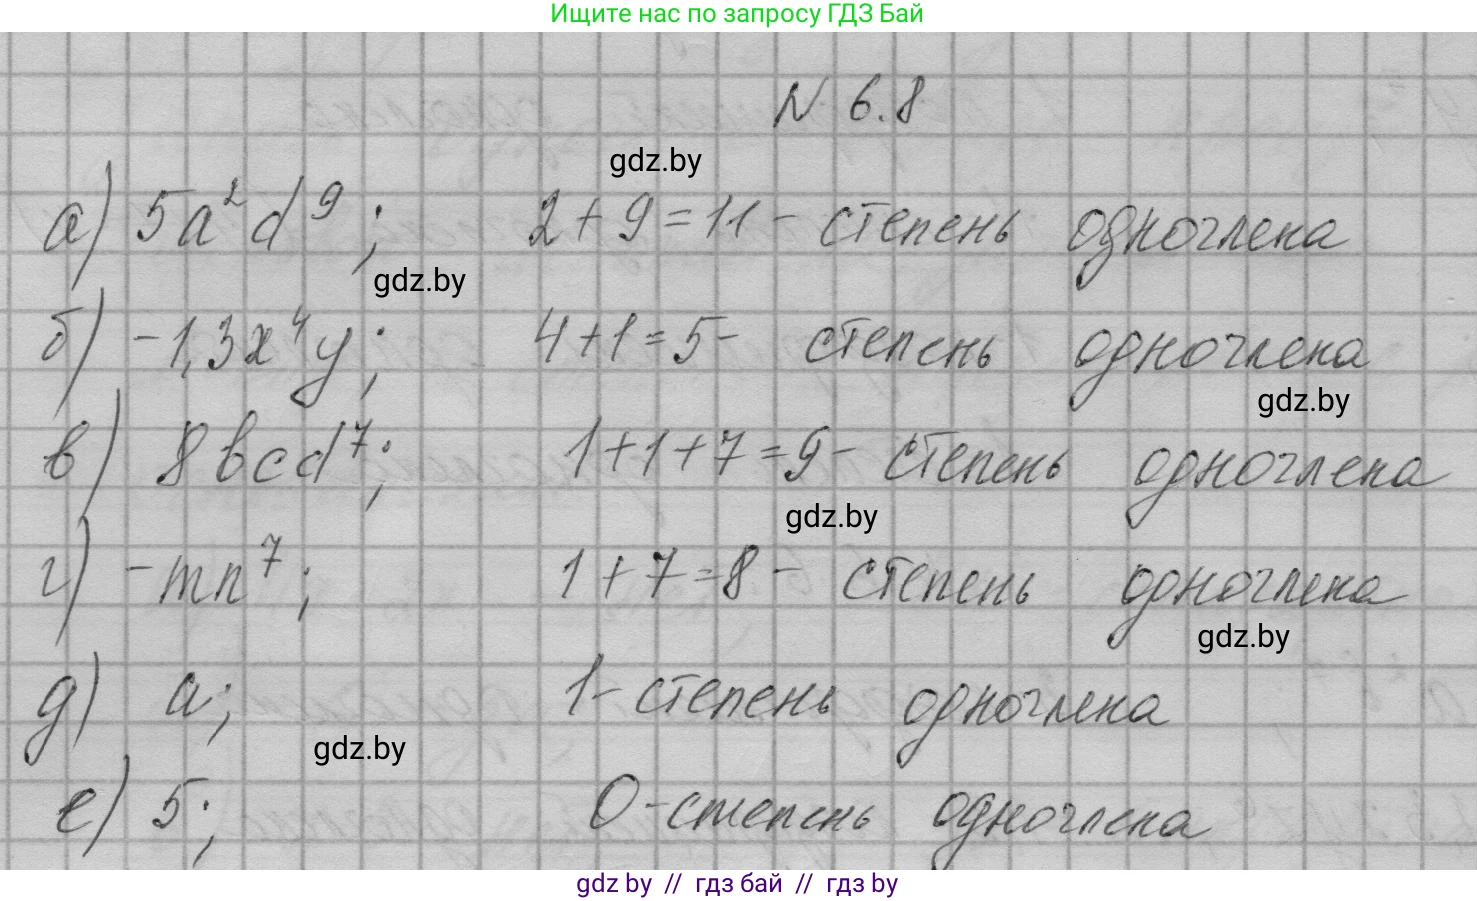 Ищите нас по запросу ГДЗ Бай
N 6.8
gdz.by
а) 5a²d⁹; 2+9=11- степень одночлена
gdz.by
б) -1,3x⁴y; 4+1=5- степень одночлена
gdz.by
в) 8bcd⁷; 1+1+7=9- степень одночлена
gdz.by
г) -mn⁷; 1+7=8- степень одночлена
gdz.by
д) a; 1- степень одночлена
gdz.by
е) 5; 0-степень одночлена
gdz by // гдз бай // гдз by